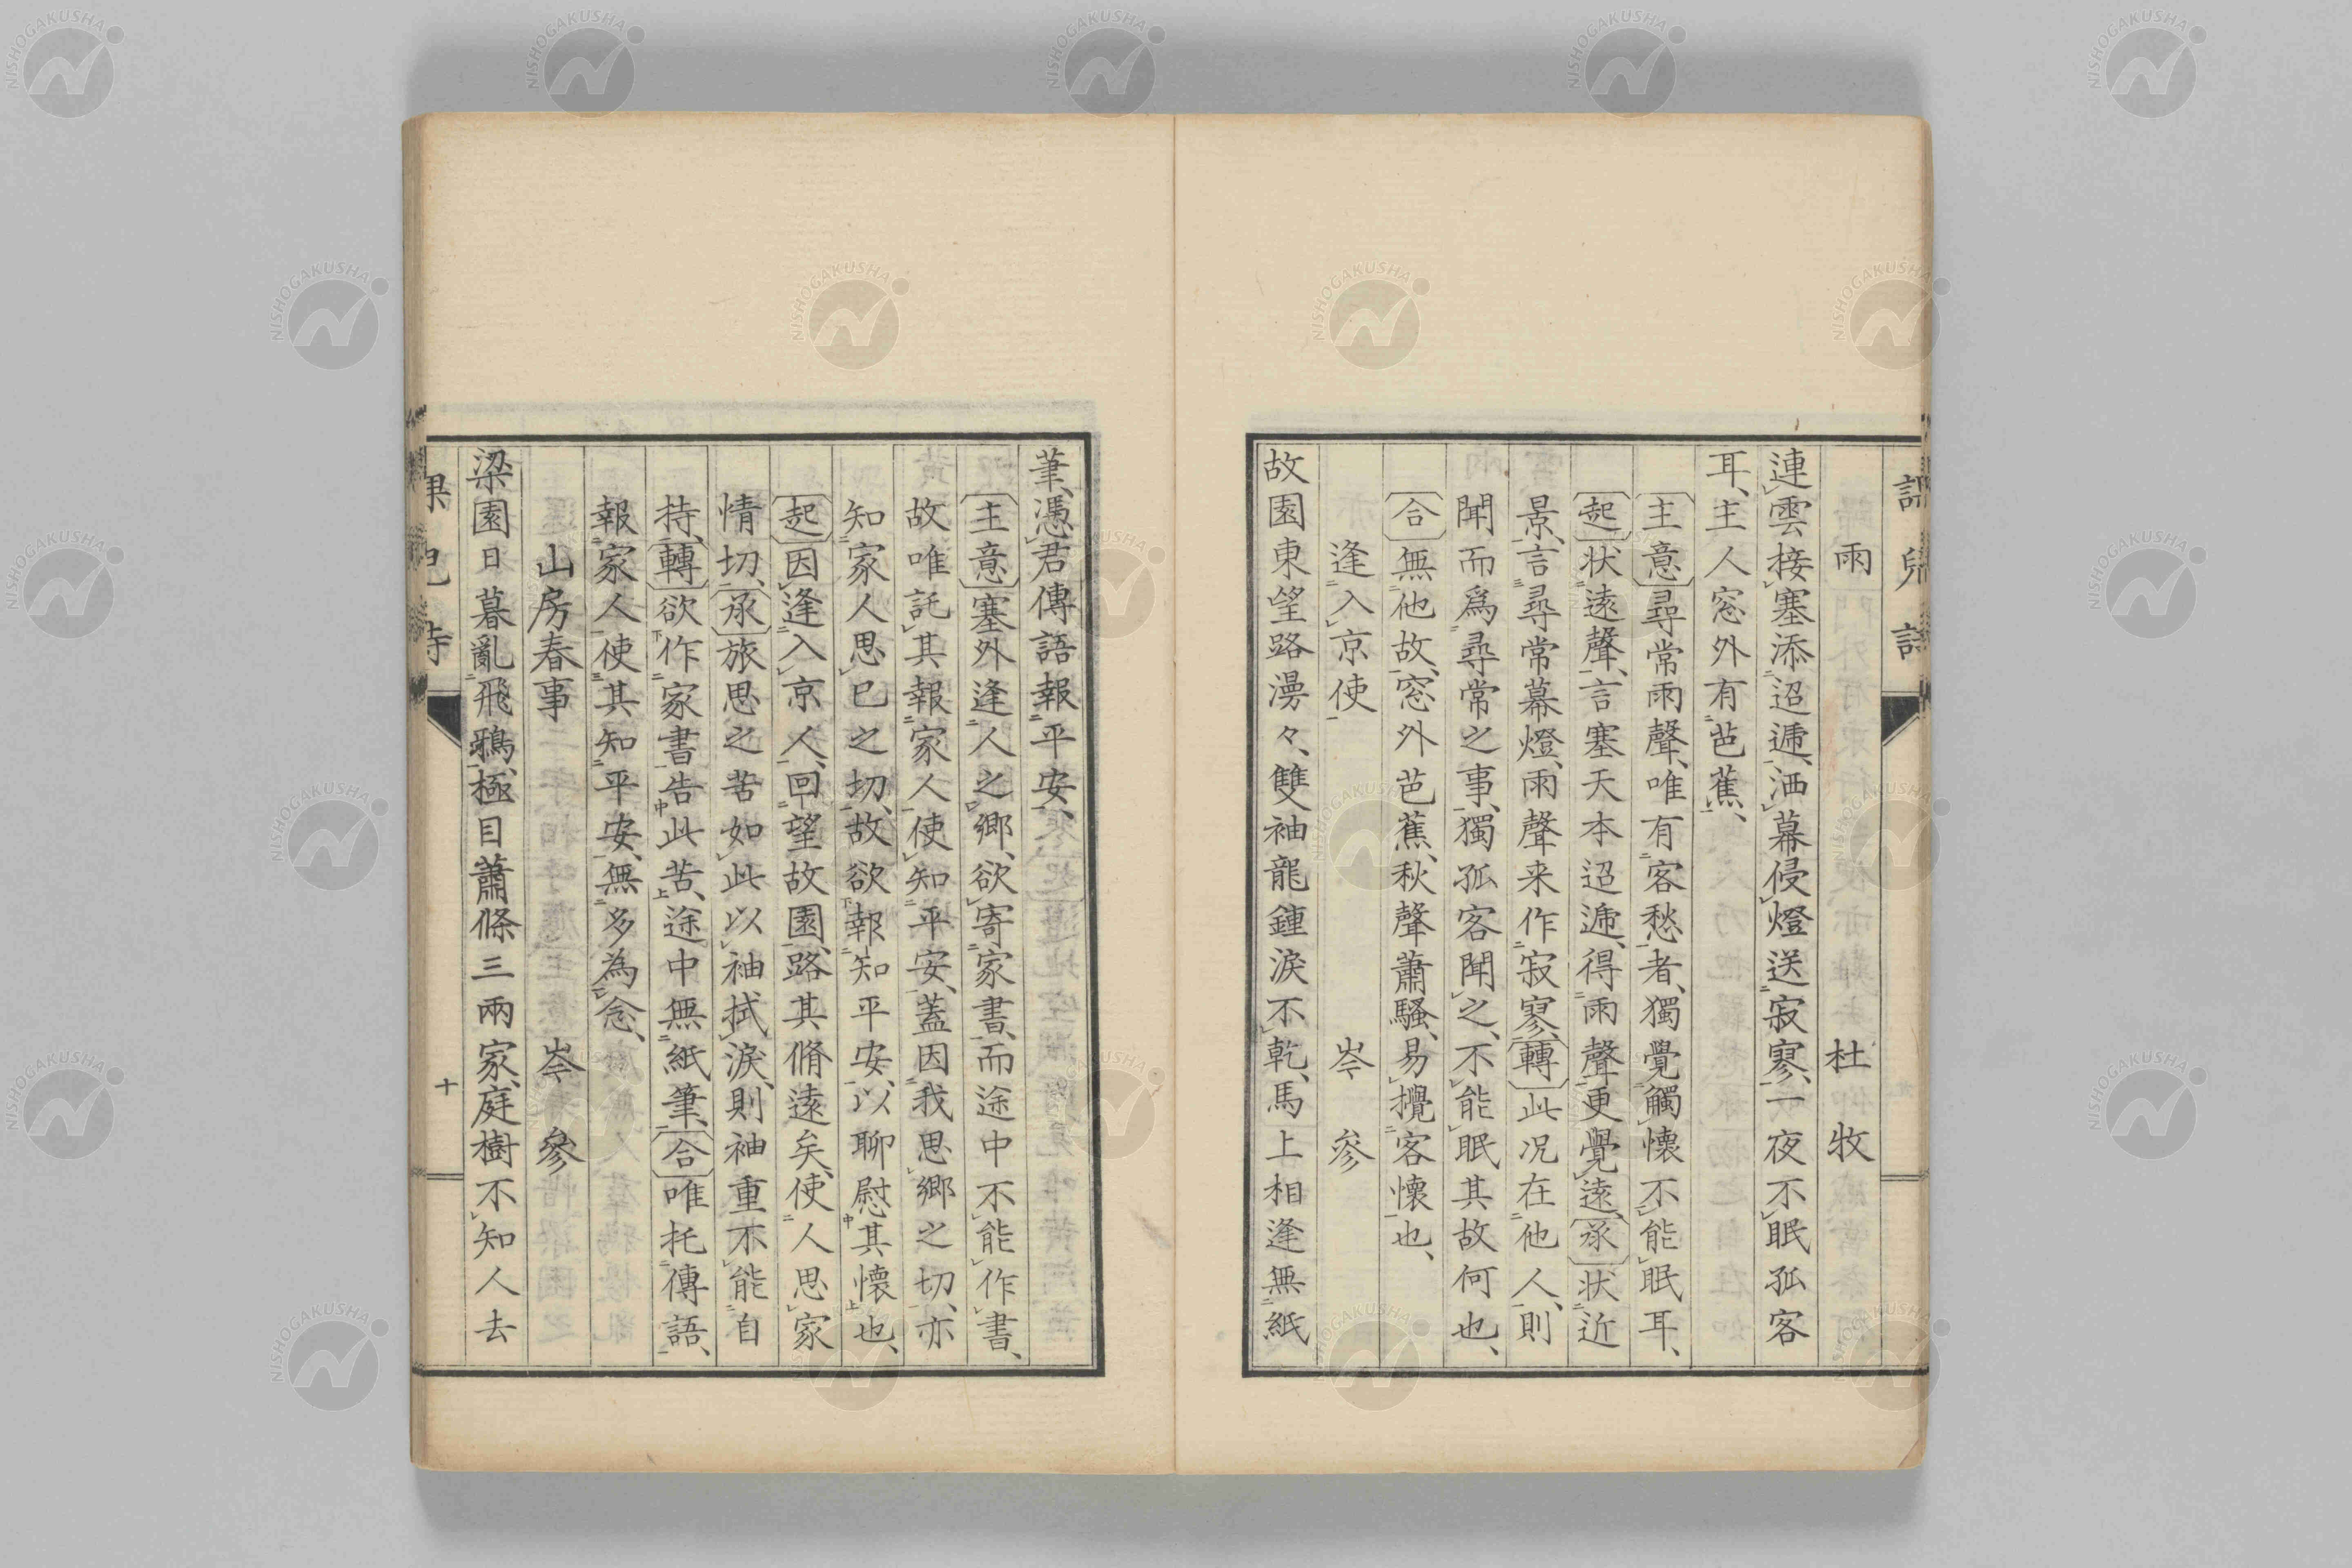 雨　杜牧
連雲接塞添迢逓、洒幕侵燈送寂寥、一夜不眠孤客
耳、主人窓外有芭蕉、
主意尋常雨聲、唯有客愁者、獨覺觸懐不能眠耳、
起状遠聲、言塞天本迢逓、得雨聲更覺遠、承状近
景、言尋常幕燈、雨聲来作寂寥、轉此况在他人、則
聞而爲尋常之事、獨孤客聞之、不能眠其故何也、
合無他故、窓外芭蕉、秋聲蕭騒、易攪客懐也、
逢入京使　岑參
故園東望路漫々、雙袖龍鍾涙不乾、馬上相逢無紙
筆、憑君傳語報平安、
主意塞外逢人之鄉、欲寄家書、而途中不能作書、
故唯託其報家人使知平安、蓋因我思鄉之切、亦
知家人思已之切、故欲報知平安、以聊慰其懐也、
起因逢入京人、回望故園、路其脩遠矣、使人思家
情切、承旅思之苦如此以袖拭涙、則袖重不能自
持、轉欲作家書告此苦、途中無紙筆、合唯托傳語、
報家人使其知平安、無多為念、
山房春事　岑參
梁園日暮亂飛鴉、極目蕭條三兩家、庭樹不知人去
十
NISHOGAKUSHA